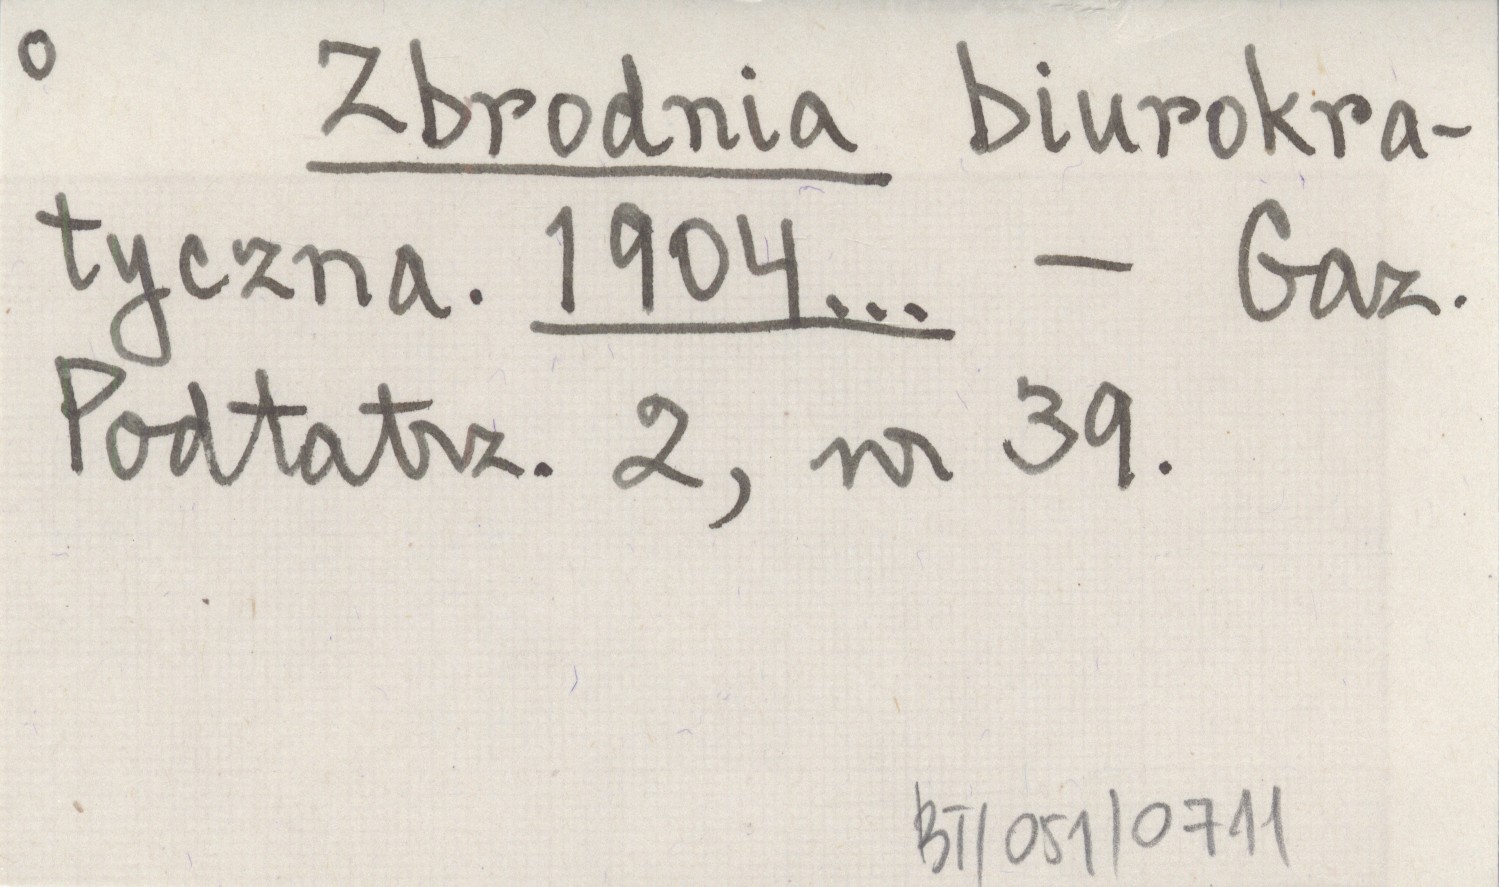 o Zbrodnia biurokra-
tyczna. 1904... — Gaz.
Podtatrz. 2, nr 39.
BT/051/0711